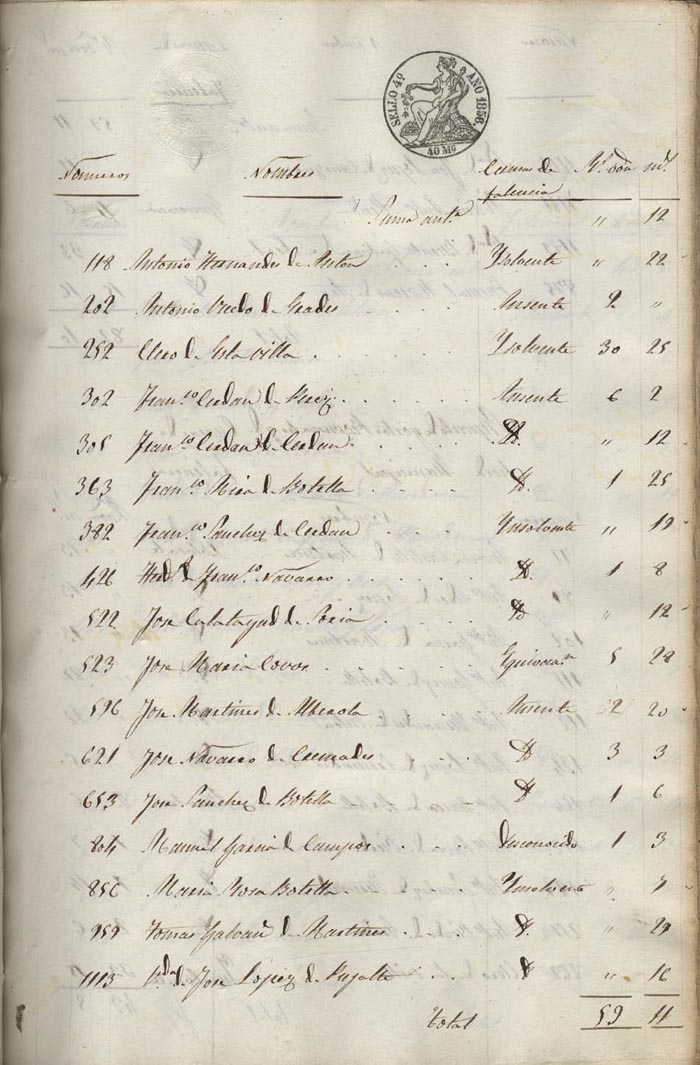 SELLO 4º AÑO 1856
40 Ms
Numeros Nombres Causa de falencia Rs. von ms.
Suma antr " 12
118 Antonio Hernandes de Anton Ysolvente " 22
202 Antonio de Ausente 2 "
252 Clero de Esta Villa Ysolvente 30 25
302 Franco Cerdan de Perez Ausente 6 2
305 Franco Cerdan de Cerdan D. " 12
363 Franco Mira de Botella D. 1 25
382 Franco Sanchez de Cerdan Ynsolvente "
426 Hedos de Franco Navarro D. 1 8
522 Jose Calatayud de Soria D. " 12
523 Jose Maria Covos 5 28
596 Jose Martines de Alberola Ausente 20
621 Jose Navarro de Cremades D 3 3
653 Jose Sanchez de Botella D 1 6
804 Manuel Garcia de Campos desconocido 1 3
856 Maria Rosa Botella Ynsolvente " 7
959 Tomas Galvañ de Martines D. " 29
1113 Vda de Jose Lopez de D " 16
Total 59 11